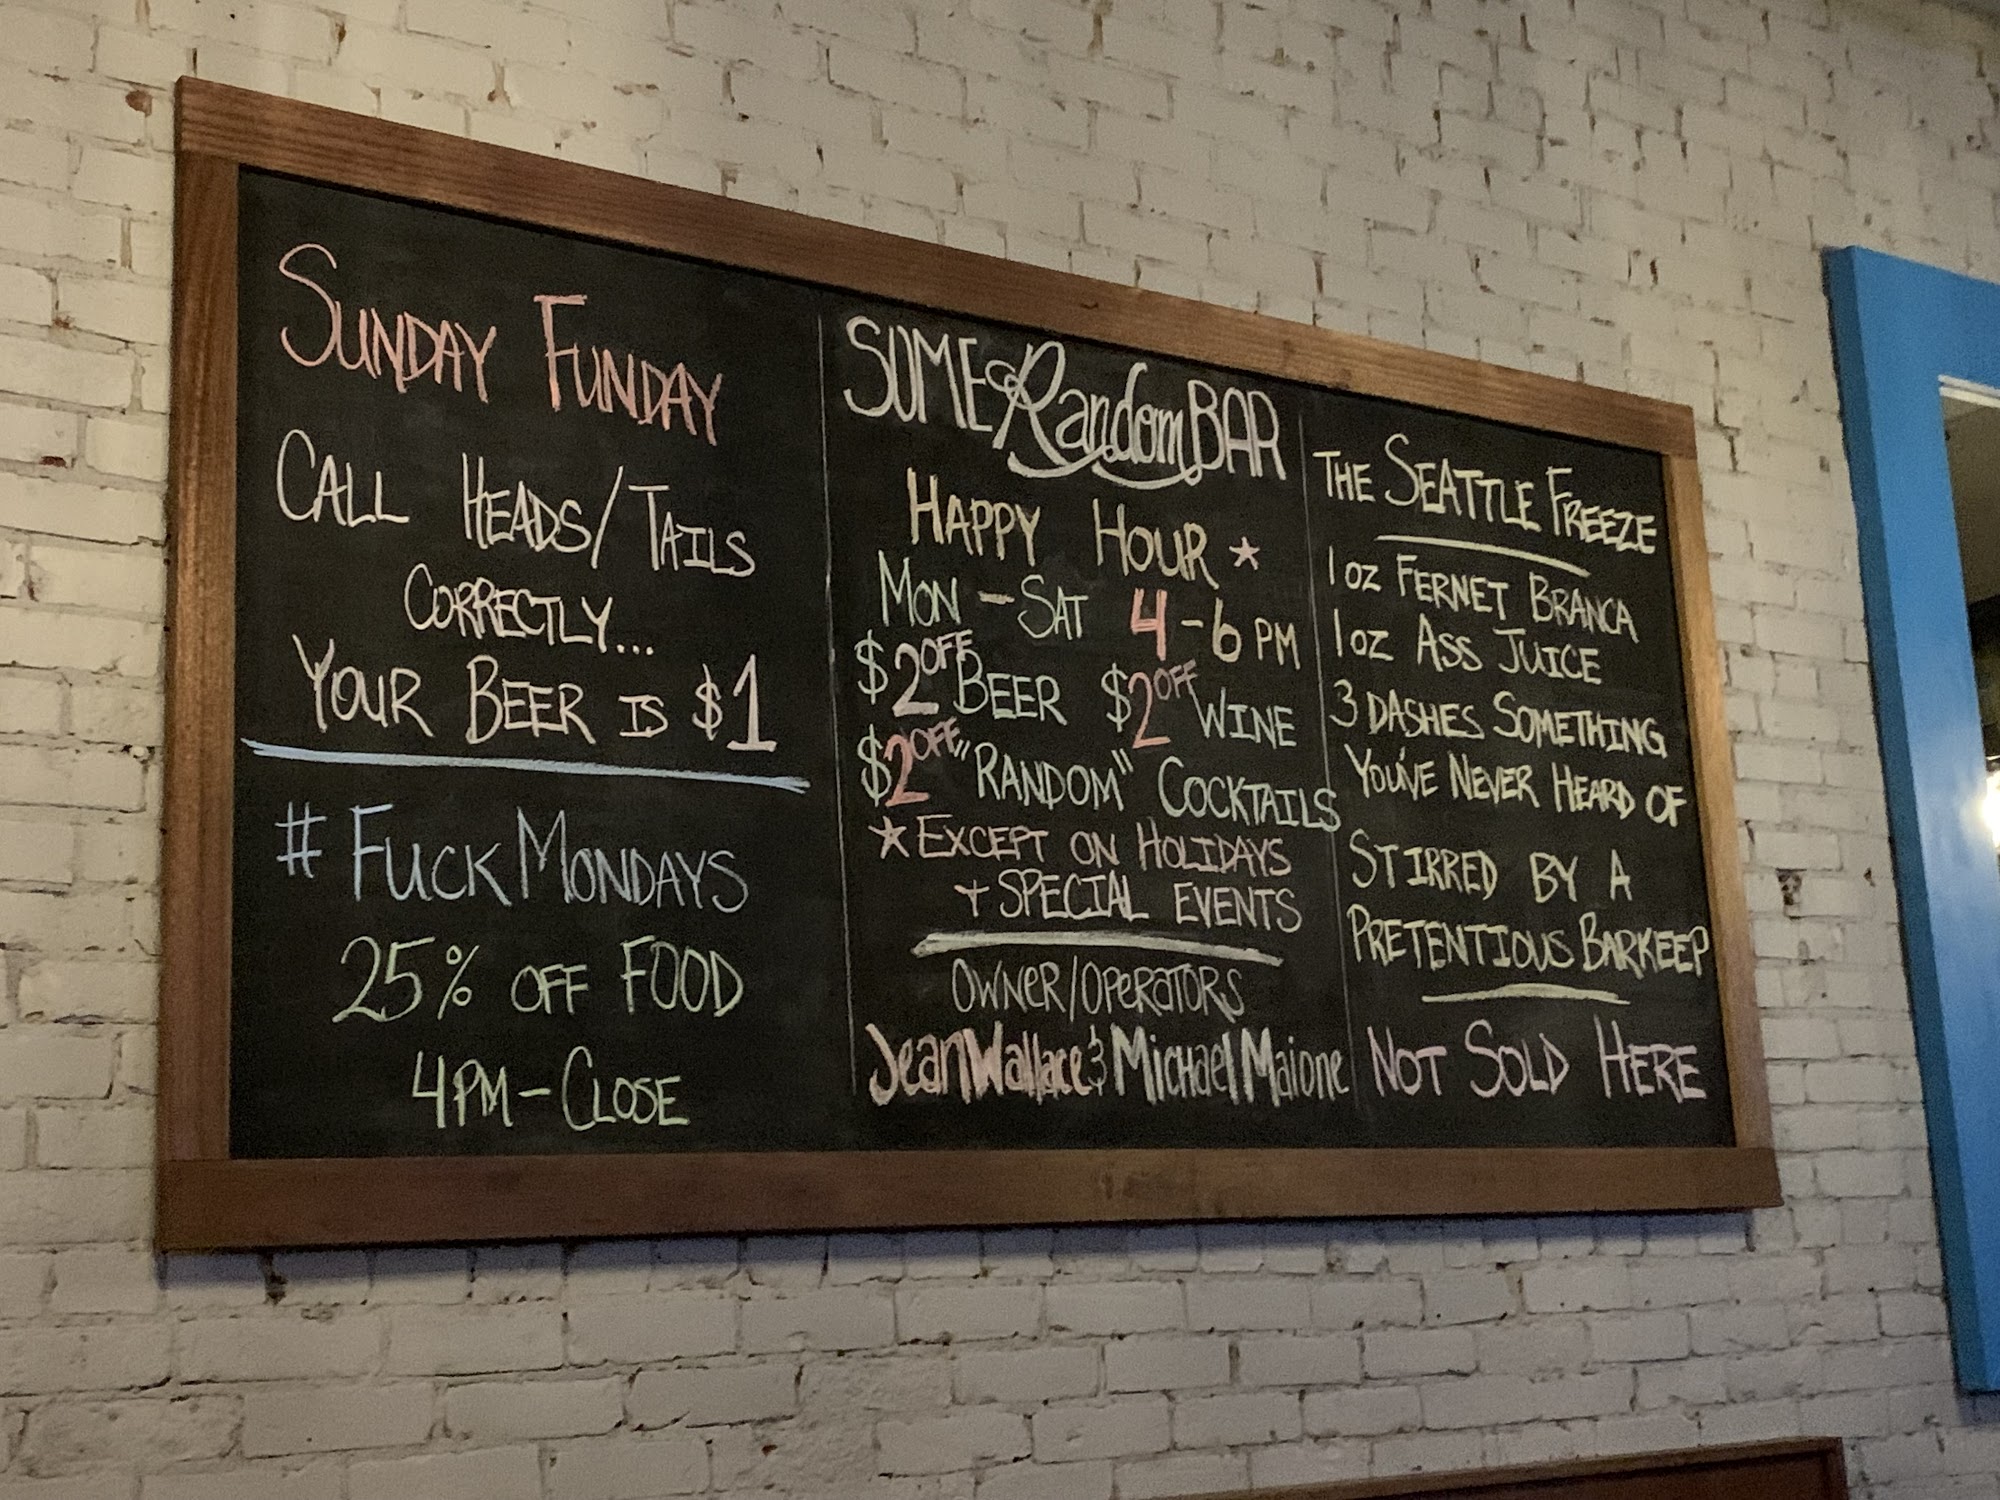 SUNDAY FUNDAY
CALL HEADS/TAILS
CORRECTLY...
YOUR BEER IS $1
# FUCK MONDAYS
25% OFF FOOD
4PM - CLOSE
SOME Random BAR
HAPPY HOUR ★
MON - SAT 4 - 6 PM
$2 OFF BEER $2 OFF WINE
$2 OFF "RANDOM" COCKTAILS
★ EXCEPT ON HOLIDAYS
+ SPECIAL EVENTS
OWNER/OPERATORS
Jean Wallace & Michael Maione
THE SEATTLE FREEZE
1 OZ FERNET BRANCA
1 OZ ASS JUICE
3 DASHES SOMETHING
YOU'VE NEVER HEARD OF
STIRRED BY A
PRETENTIOUS BARKEEP
NOT SOLD HERE